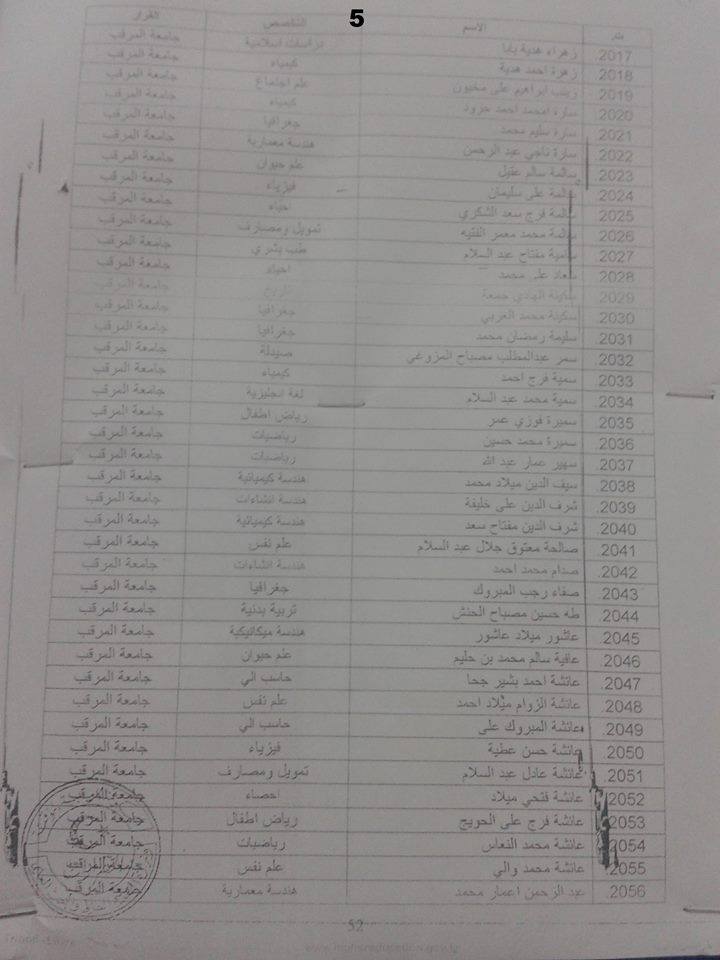 5
م. الاسم التخصص القرار
2017. زهراء هدية بابا دراسات اسلامية جامعة المرقب
2018. زهرة احمد هدية كيمياء جامعة المرقب
2019. زينب ابراهيم على مخيون علم اجتماع جامعة المرقب
2020. سارة امحمد احمد حرود كيمياء جامعة المرقب
2021. سارة سليم محمد جغرافيا جامعة المرقب
2022. سارة ناجي عبد الرحمن هندسة معمارية جامعة المرقب
2023. سالمة سالم عقيل علم حيوان جامعة المرقب
2024. سالمة على سليمان فيزياء جامعة المرقب
2025. سالمة فرج سعد الشكري احياء جامعة المرقب
2026. سالمة محمد معمر الفقيه تمويل ومصارف جامعة المرقب
2027. سامية مفتاح عبد السلام طب بشري جامعة المرقب
2028. سعاد على محمد احياء جامعة المرقب
2029. سكينة الهادي جمعة جامعة المرقب
2030. سكينة محمد الغربي جغرافيا جامعة المرقب
2031. سليمة رمضان محمد جغرافيا جامعة المرقب
2032. سمر عبدالمطلب مصباح المزوغي صيدلة جامعة المرقب
2033. سمية فرج احمد كيمياء جامعة المرقب
2034. سمية محمد عبد السلام لغة انجليزية جامعة المرقب
2035. سميرة فوزي عمر رياض اطفال جامعة المرقب
2036. سميرة محمد حسين رياضيات جامعة المرقب
2037. سهير عمار عبد الله رياضيات جامعة المرقب
2038. سيف الدين ميلاد محمد هندسة كيميائية جامعة المرقب
2039. شرف الدين على خليفة هندسة انشاءات جامعة المرقب
2040. شرف الدين مفتاح سعد هندسة كيميائية جامعة المرقب
2041. صالحة معتوق جلال عبد السلام علم نفس جامعة المرقب
2042. صدام محمد احمد هندسة انشاءات جامعة المرقب
2043. صفاء رجب المبروك جغرافيا جامعة المرقب
2044. طه حسين مصباح الحنش تربية بدنية جامعة المرقب
2045. عاشور ميلاد عاشور هندسة ميكانيكية جامعة المرقب
2046. عافية سالم محمد بن حليم علم حيوان جامعة المرقب
2047. عائشة احمد بشير جحا حاسب الي جامعة المرقب
2048. عائشة الزوام ميلاد احمد علم نفس جامعة المرقب
2049. عائشة المبروك على حاسب الي جامعة المرقب
2050. عائشة حسن عطية فيزياء جامعة المرقب
2051. عائشة عادل عبد السلام تمويل ومصارف جامعة المرقب
2052. عائشة فتحي ميلاد احصاء جامعة المرقب
2053. عائشة فرج على الحويج رياض اطفال جامعة المرقب
2054. عائشة محمد النعاس رياضيات جامعة المرقب
2055. عائشة محمد والي علم نفس جامعة المرقب
2056. عبد الرحمن اعمار محمد هندسة معمارية جامعة المرقب
52